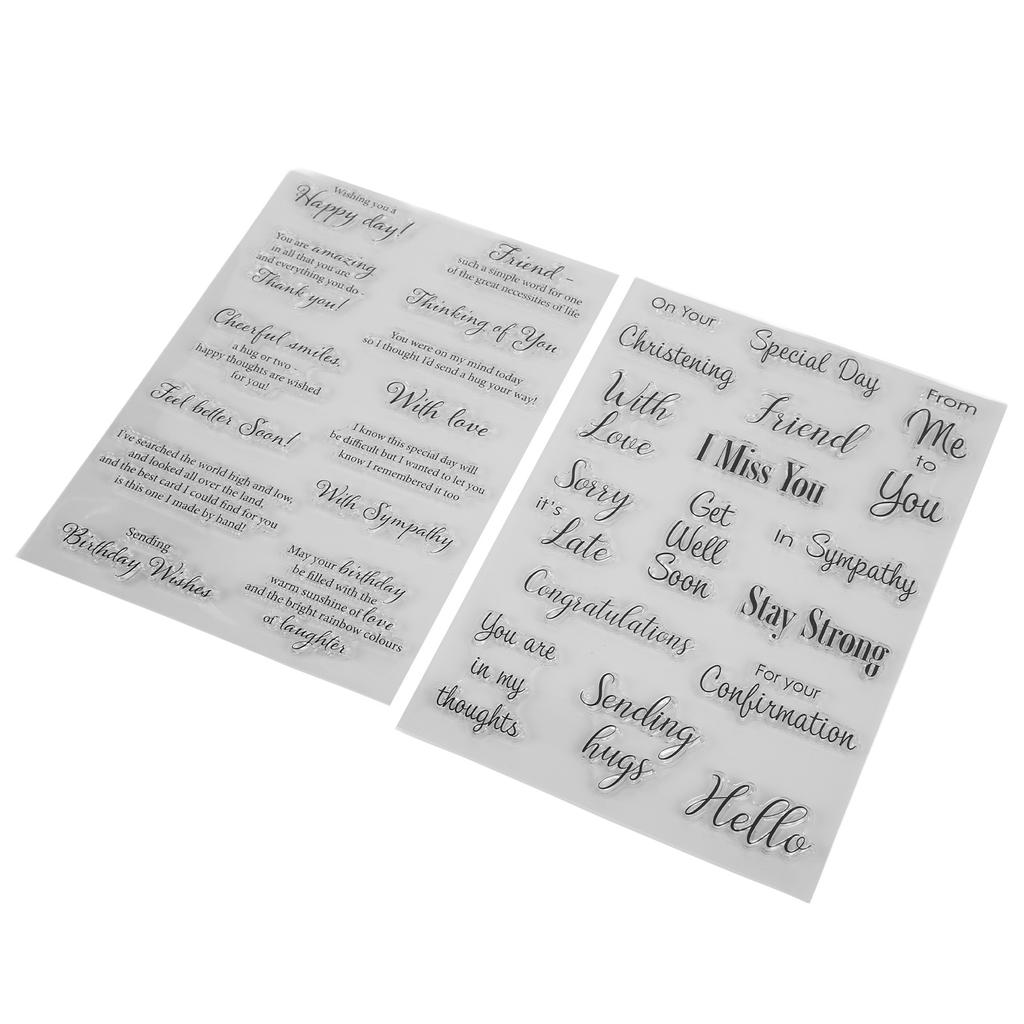 Wishing you a
Happy day!
You are amazing
in all that you are
and everything you do -
Thank you!
Cheerful smiles,
a hug or two -
happy thoughts are wished
for you!
Feel better Soon!
I've searched the world high and low,
and looked all over the land,
and the best card I could find for you
is this one I made by hand!
Sending
Birthday Wishes
Friend -
such a simple word for one
of the great necessities of life
Thinking of You
You were on my mind today
so I thought I'd send a hug your way!
With love
I know this special day will
be difficult but I wanted to let you
know I remembered it too
With Sympathy
May your birthday
be filled with the
warm sunshine of love
and the bright rainbow colours
of laughter
On Your
Christening
Special Day
From
Me
to
You
With
Love
Friend
I Miss You
Sorry
it's
Late
Get
Well
Soon
In Sympathy
Congratulations
Stay Strong
You are
in my
thoughts
For your
Confirmation
Sending
hugs
Hello